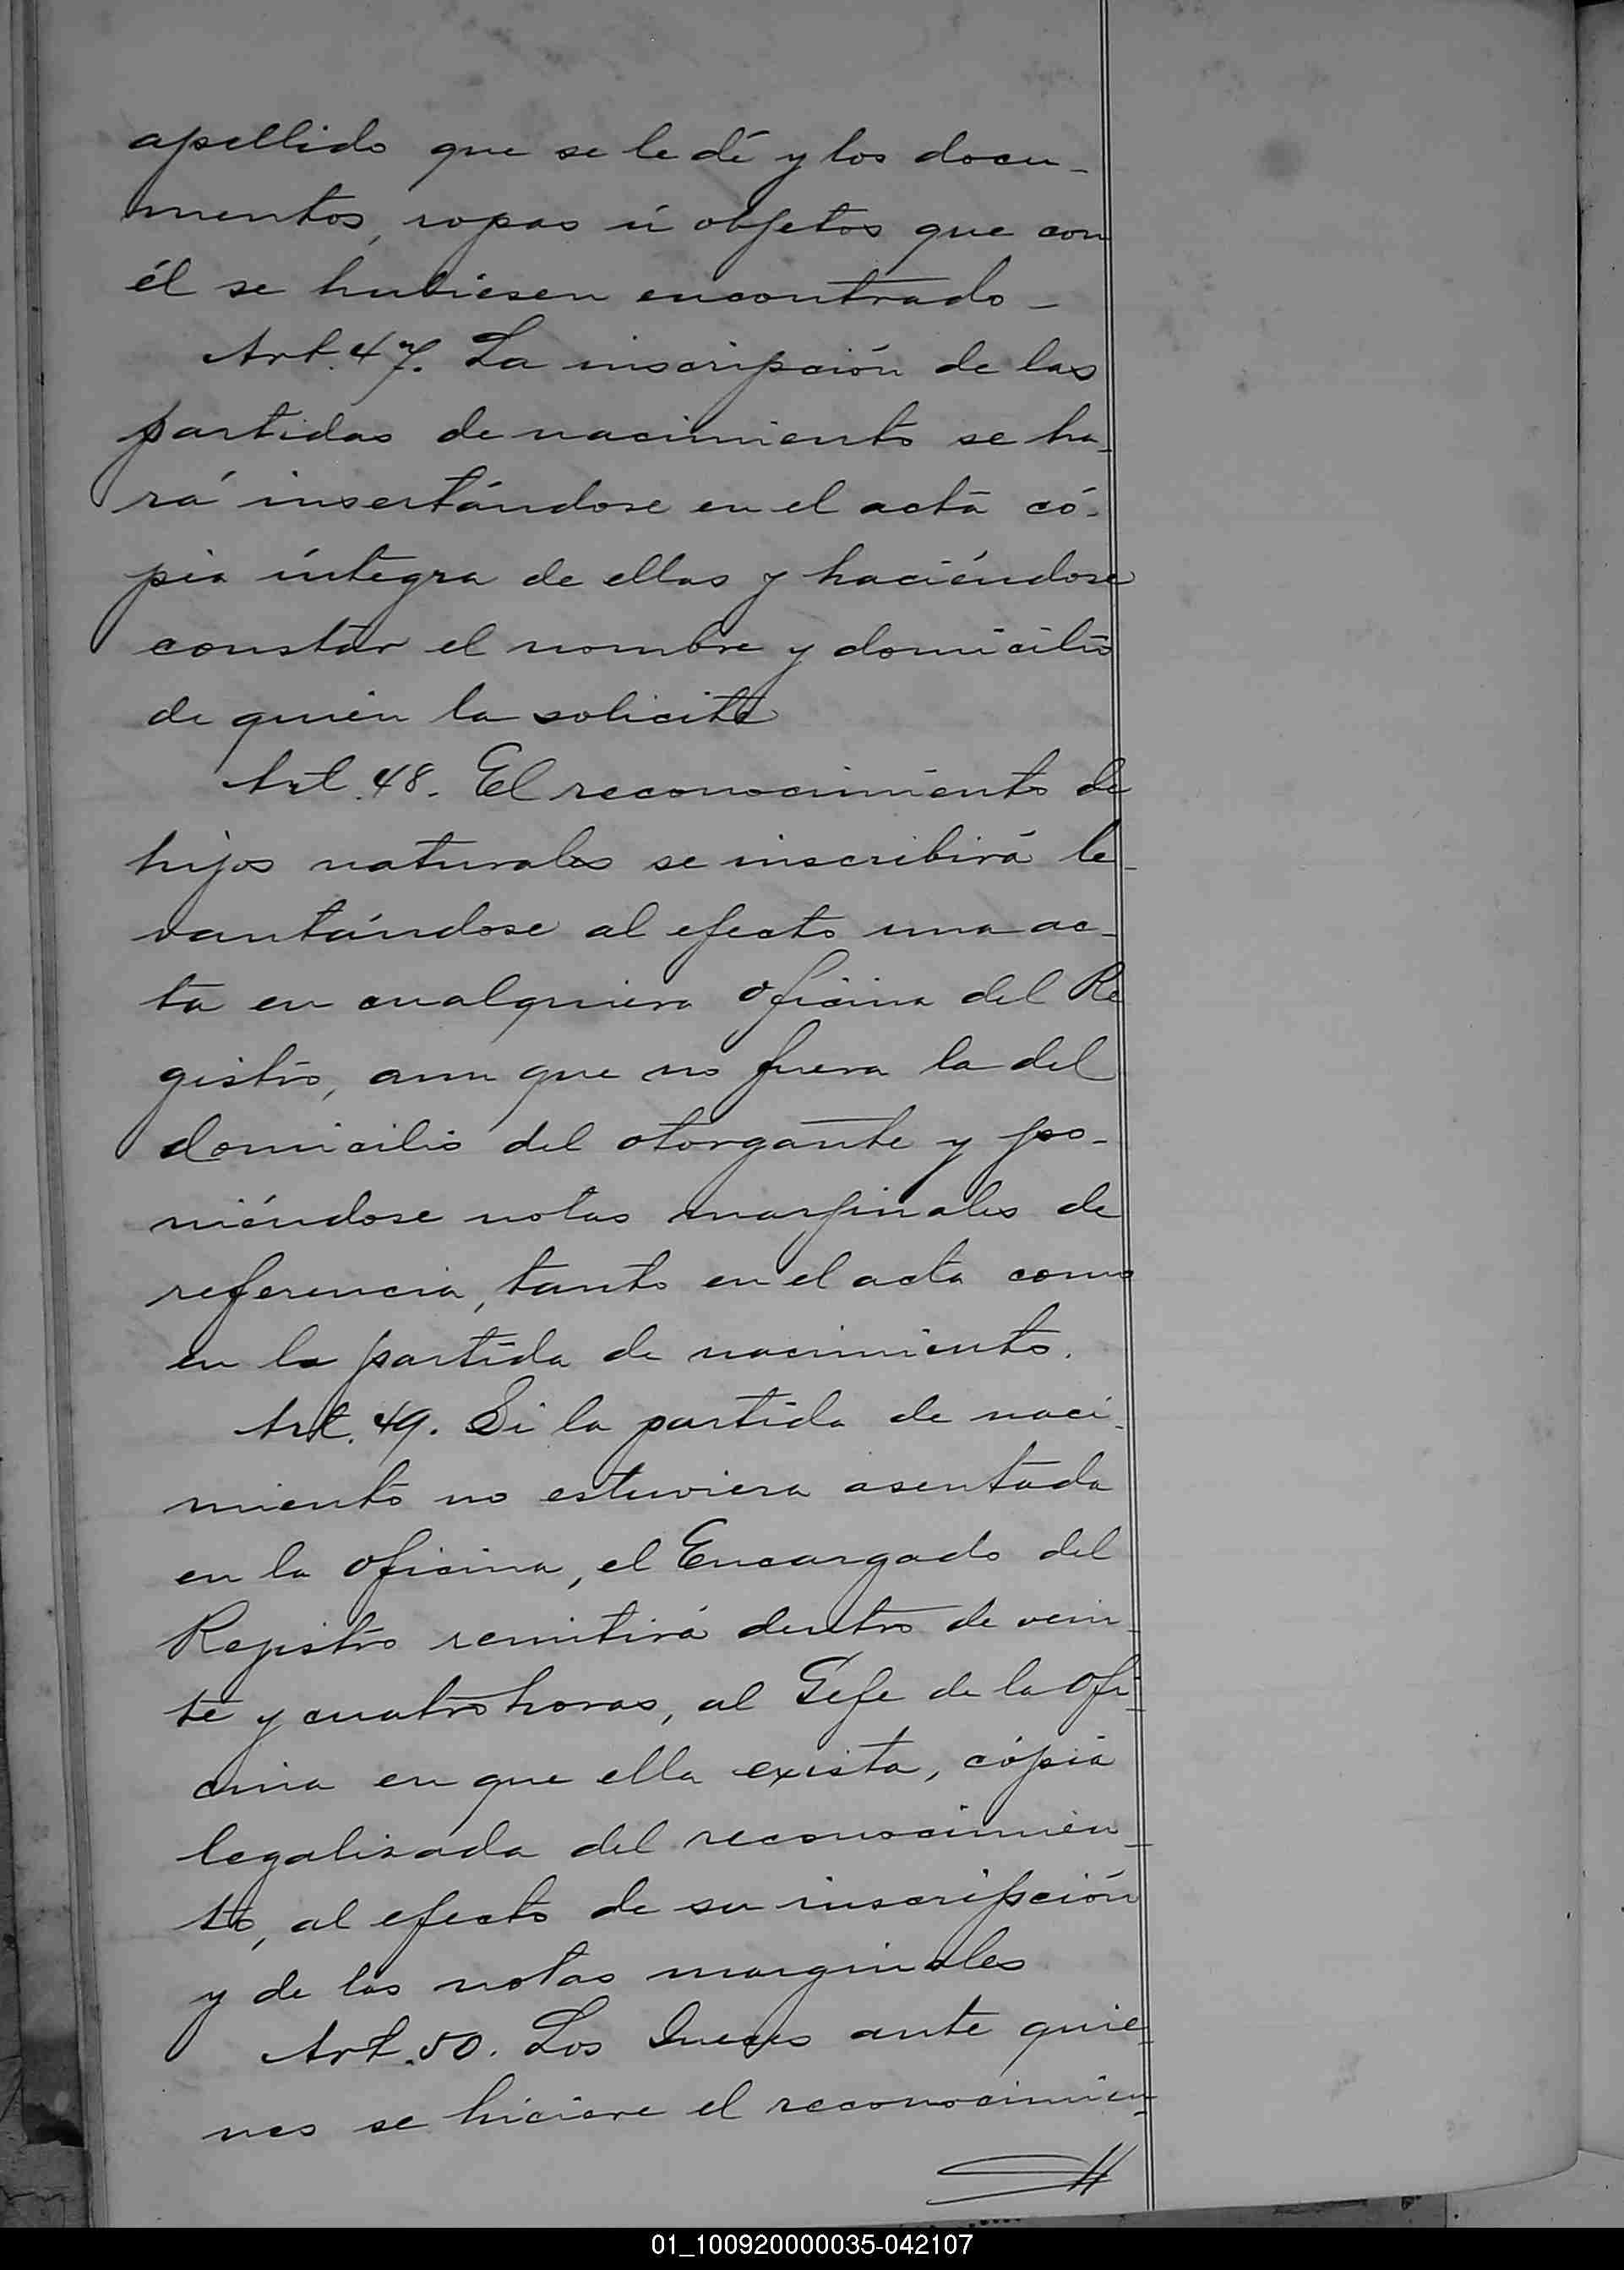 apellido que se le dé y los docu-
mentos, ropas ú objetos que con
él se hubiesen encontrado-
Art. 47. La inscripción de las
partidas de nacimiento se ha-
rá insertándose en el acta có-
pia íntegra de ellas y haciéndose
constar el nombre y domicilio
de quién la solicite
Art. 48. El reconocimiento de
hijos naturales se inscribirá le-
vantándose al efecto una ac-
ta en cualquiera oficina del Re
gistro, aun que no fuera la del
domicilio del otorgante y po-
niéndose notas marginales de
referencia, tanto en el acta como
en la partida de nacimiento.
Art. 49. Si la partida de naci-
miento no estuviera asentada
en la oficina, el Encargado del
Registro remitirá dentro de vein-
te y cuatro horas, al Gefe de la Ofi-
cina en que ella exista, cópia
legalizada del reconocimien-
to, al efecto de su inscripción
y de las notas marginales
Art. 50. Los Jueces ante quie-
nes se hiciere el reconocimien-
01_100920000035-042107